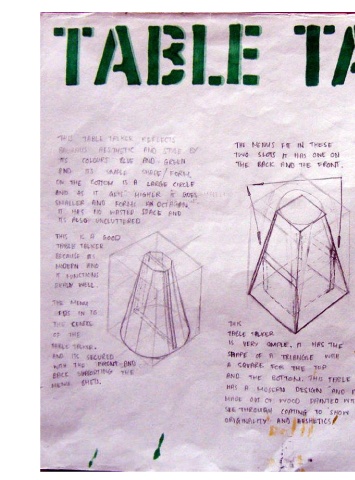 TABLE TA
THIS TABLE TALKER REFLECTS
BAUHAUS AESTHETIC AND STYLE OF
ITS COLOURS BLUE AND GREEN
AND ITS SHAPE THESE FORM,
ON THE BOTTOM IS A LARGE CIRCLE
AND AS IT GETS HIGHER IT GOES
SMALLER AND FORMS AN OCTAGON.
IT HAS NO WASTED SPACE AND
ITS ALSO UNCLUTTERED
THIS IS A GOOD
TABLE TALKER
BECAUSE ITS
MODERN AND
IT FUNCTIONS
REALLY WELL.
THE MENU
IN TO
THE CENTRE
OF THE
TABLE TALKER,
AND ITS SECURED
WITH THE FRONT AND
BACK SUPPORTING THE
MENU SHEETS.
THE MENUS FIT IN THESE
TWO SLOTS IT HAS ONE ON
THE BACK AND THE FRONT.
THIS
TABLE TALKER
IS VERY SIMPLE, IT HAS THE
SHAPE OF A TRIANGLE WITH
A SQUARE FOR THE TOP
AND THE BOTTOM. THIS TABLE
HAS A MODERN DESIGN AND
MADE OUT OF WOOD PAINTED WIT
SEE THROUGH COATING TO SHOW
ORIGINALITY AND AESTHETICS